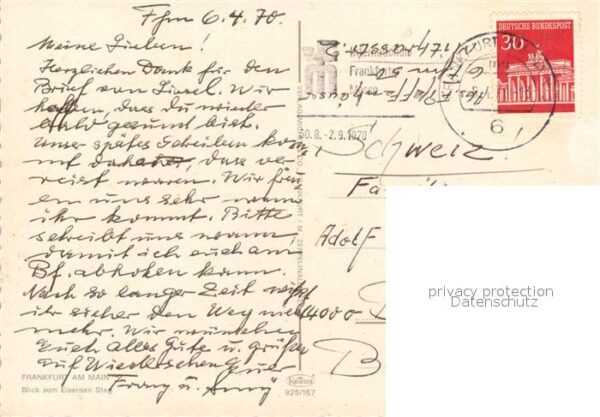 Ffm 6.4.70.
Meine Lieben!
Herzlichen Dank für den
Brief von Liesel. Wir
hoffen, dass du wieder
bald gesund bist.
Unser spätes Schreiben kommt
auf daher, dass ver-
reist waren. Wir freu-
en uns sehr wenn
ihr kommt. Bitte
schreibt uns wann,
damit ich euch am
Bf. abholen kann.
Nach so langer Zeit wißt
ihr sicher den Weg nicht
mehr. Wir wünschen
Euch alles Gute u. grüßen
auf Wiedersehen Euer
Franz u. Anny
FRANKFURT AM MAIN
Blick zum Eisernen Steg
Krüger
925/167
DEUTSCHE BUNDESPOST
30
Internationale
Frankfurter
Messe
30.8.-2.9.1970
FRANKFURT
6
Schweiz!
Adolf
4000
B
privacy protection
Datenschutz